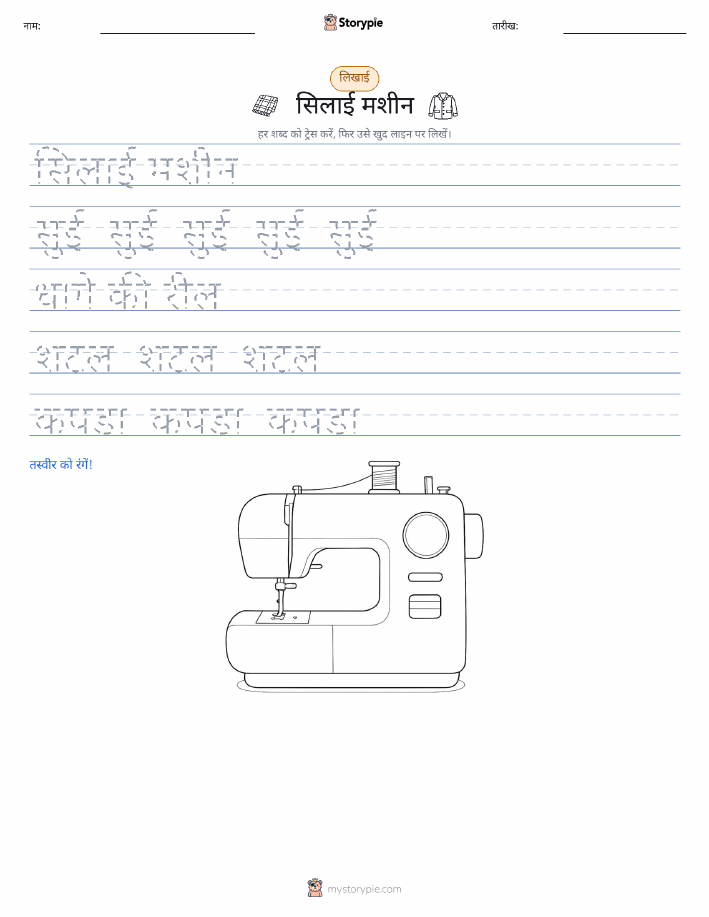 नाम:
Storypie
तारीख:
लिखाई
सिलाई मशीन
हर शब्द को ट्रेस करें, फिर उसे खुद लाइन पर लिखें।
सिलाई मशीन
सुई सुई सुई सुई सुई
धागे की रील
शटल शटल शटल
कपडा कपडा कपडा
तस्वीर को रंगें!
mystorypie.com